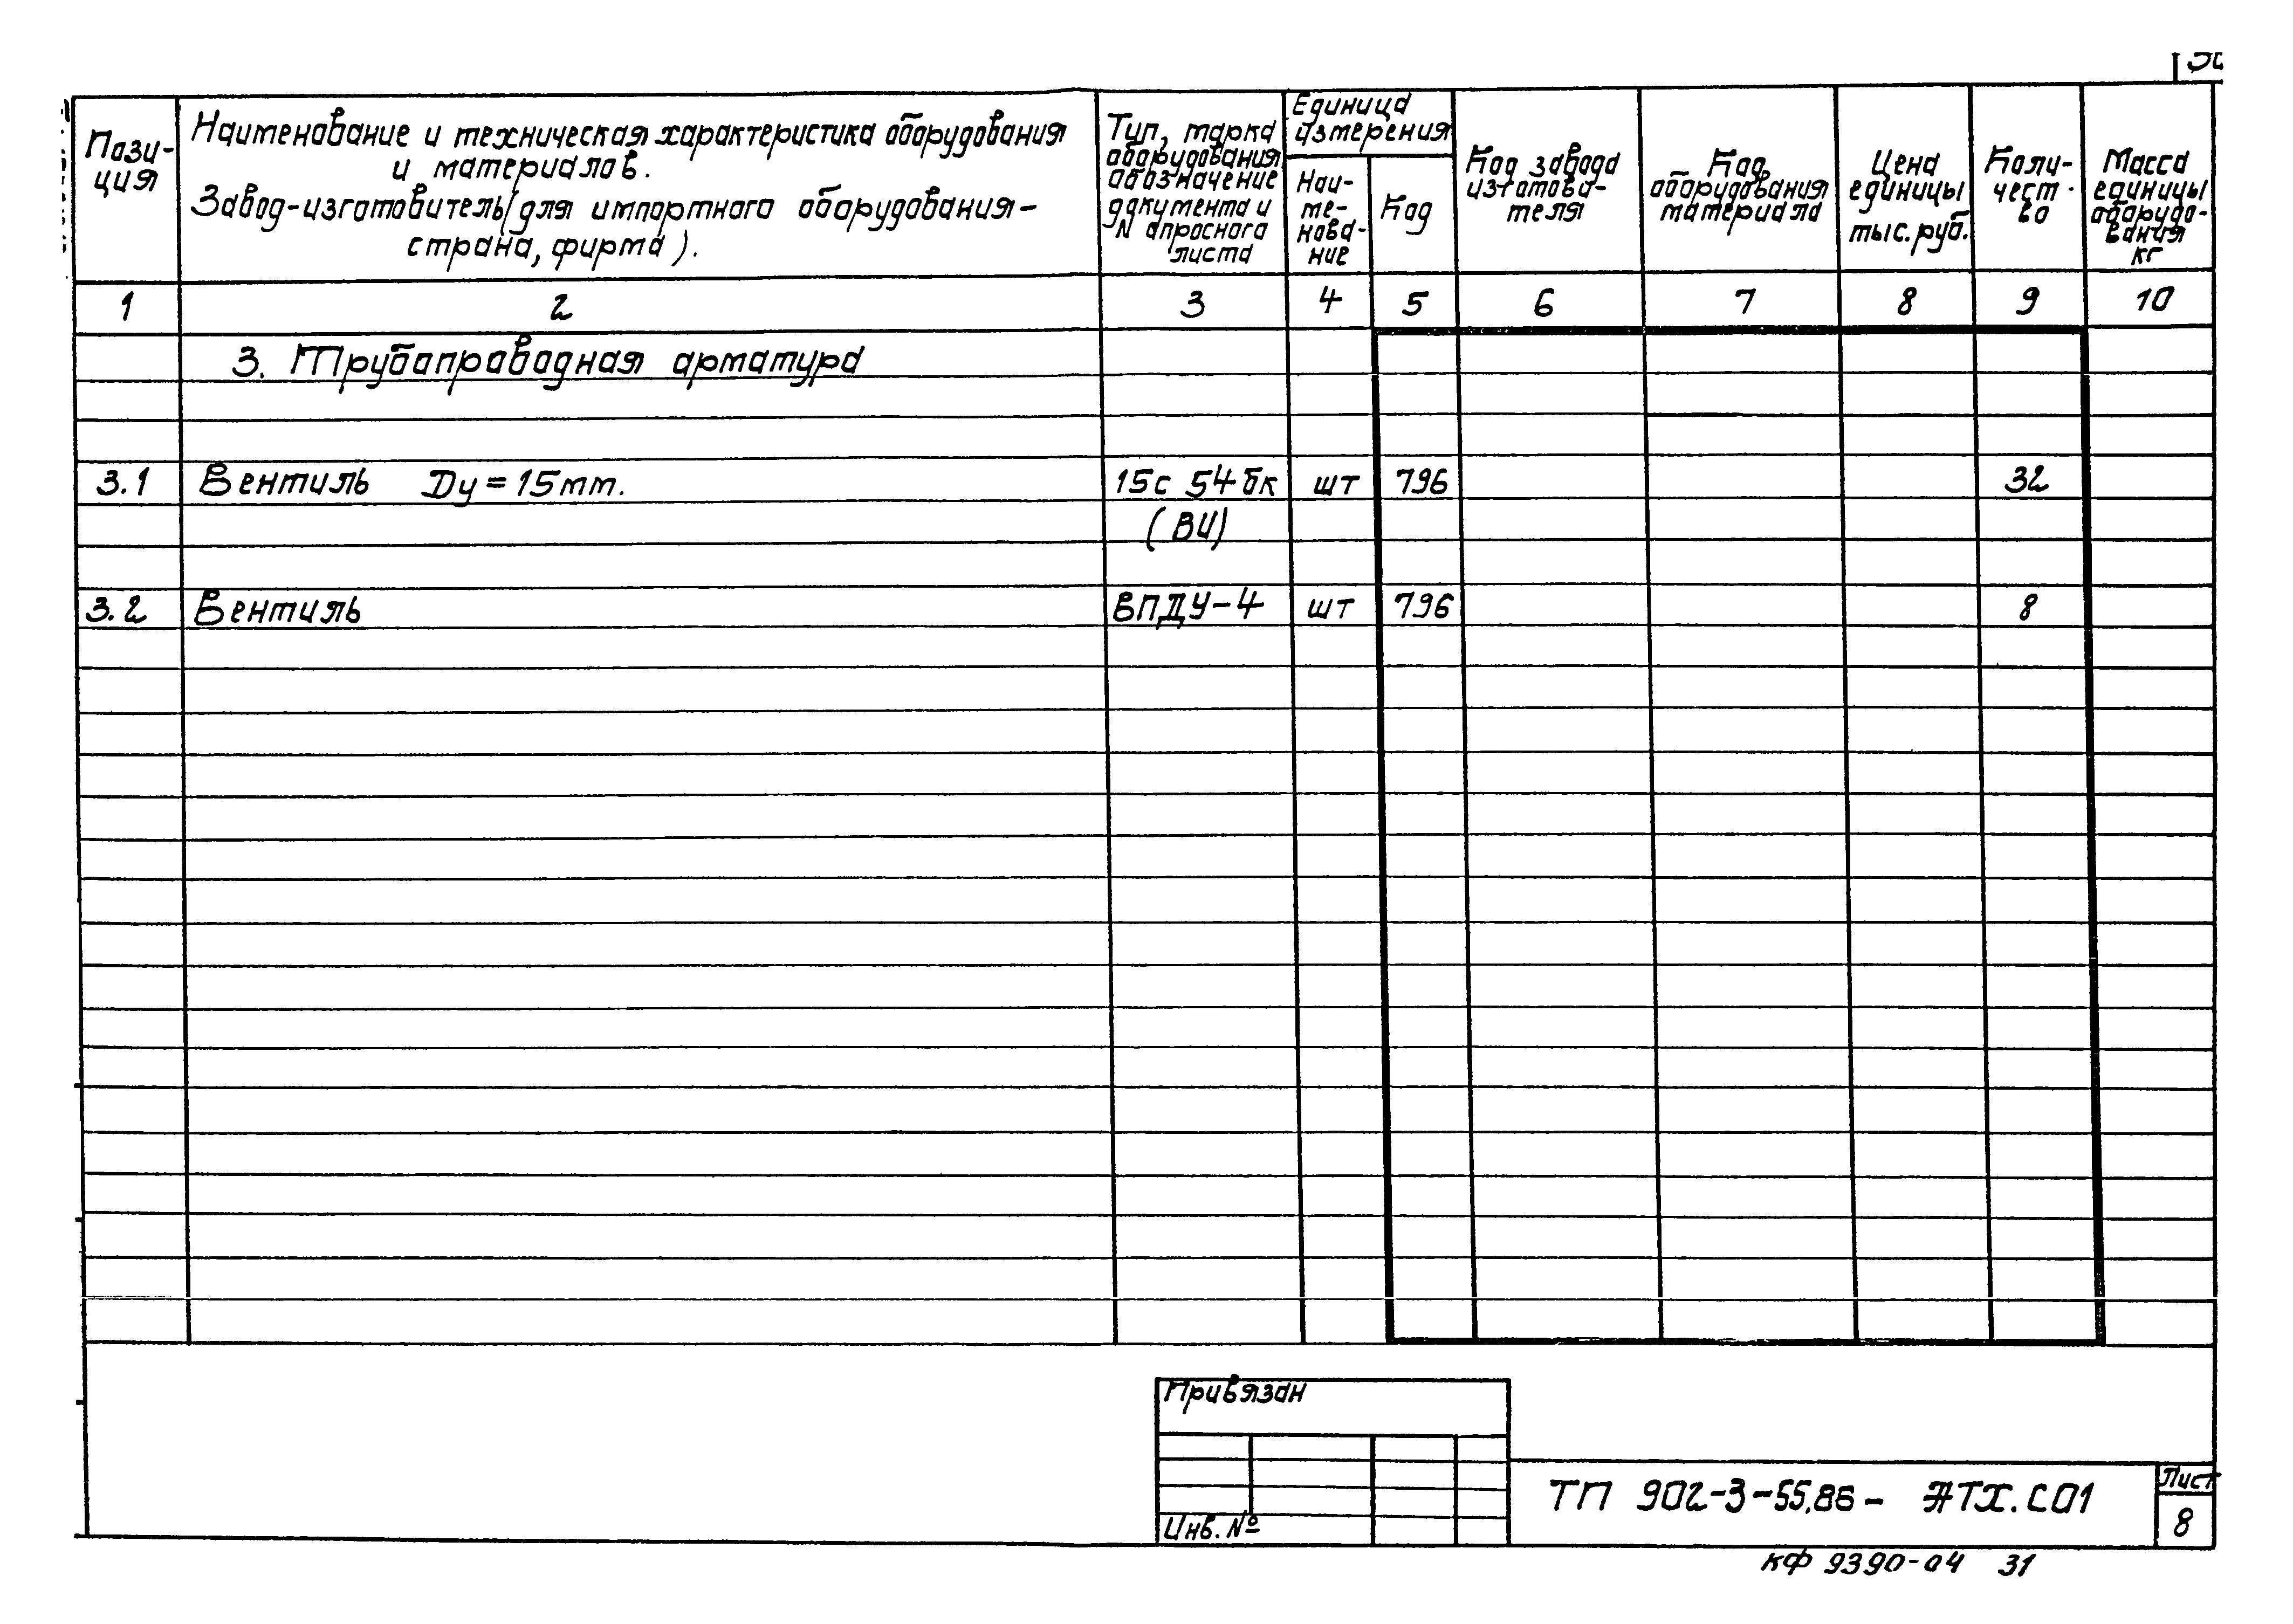 Пози-
ция
Наименование и техническая характеристика оборудования
и материалов.
Завод-изготовитель (для импортного оборудования-
страна, фирма).
Тип, марка
оборудования
обозначение
документа и
N опросного
листа
Единица
измерения
Наи-
ме-
нова-
ние
Код
Код завода
изготови-
теля
Код
оборудования
материала
Цена
единицы
тыс.руб.
Коли-
чест-
во
Масса
единицы
оборудо-
вания
кг
1 2 3 4 5 6 7 8 9 10
3. Трубопроводная арматура
3.1 Вентиль Dу = 15мм. 15с 54 бк шт 796 32
(ВИ)
3.2 Вентиль ВПДУ-4 шт 796 8
Привязан
Инв. №
ТП 902-3-55.86 - АТХ.СО1
Лист
8
КФ 9390-04 31